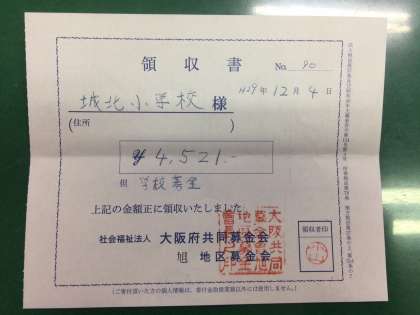 領収書
No. 90
H29年12月4日
城北小学校 様
(住所
¥4,521.-
但 学校募金
上記の金額正に領収いたしました。
社会福祉法人 大阪府共同募金会
旭 地区募金会
領収者印
(ご寄付頂いた方の個人情報は、寄付金取扱業務以外には使用しません。)